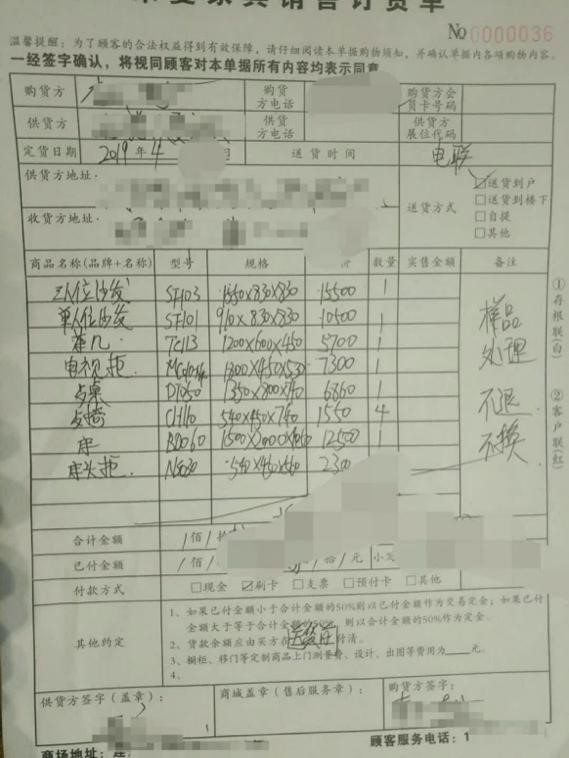 家具销售订货单
No 0000036
温馨提醒：为了顾客的合法权益得到有效保障，请仔细阅读本单据购物须知，并确认单据内各项购物内容。
一经签字确认，将视同顾客对本单据所有内容均表示同意
购货方 购货方电话 购货方会员卡号码
供货方 供货方电话 供货方展位代码
定货日期 2019年4 日 送货时间 电联
供货方地址：
收货方地址：
送货方式 ☑送货到户 □送货到楼下 □自提 □其他
商品名称(品牌+名称) 型号 规格 价 数量 实售金额 备注
三人位沙发 SF103 830X830 15500 1
单人位沙发 SF101 910X830X830 10500 1
茶几 TC113 1200X600X450 5700 1
电视柜 1800X450X530 7300 1
桌 DT050 1350X800X740 6860 1
椅 CH110 540X450X740 1560 4
床 BD060 1500X2000 12500 1
床头柜 540X460X560 2300
样品处理 不退不换
①存根联(白) ②客户联(红)
合计金额 佰
已付金额 佰 拾 元
付款方式 □现金 ☑刷卡 □支票 □预付卡 □其他
其他约定
1、如果已付金额小于合计金额的50%则以已付金额作为交易定金；如果已付金额大于等于合计金额的50%，则以合计金额的50%作为定金。
2、贷款余额应由买方在送货前付清。
3、橱柜、移门等定制商品上门测量费、设计、出图等费用为____元。
4、
供货方签字（盖章）： 商城盖章（售后服务章）： 购货方签字：
商场地址： 顾客服务电话：1